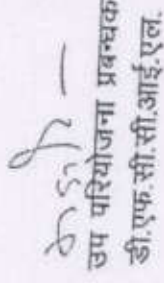 उप परियोजना प्रबन्धक
डी.एफ.सी.सी.आई.एल.